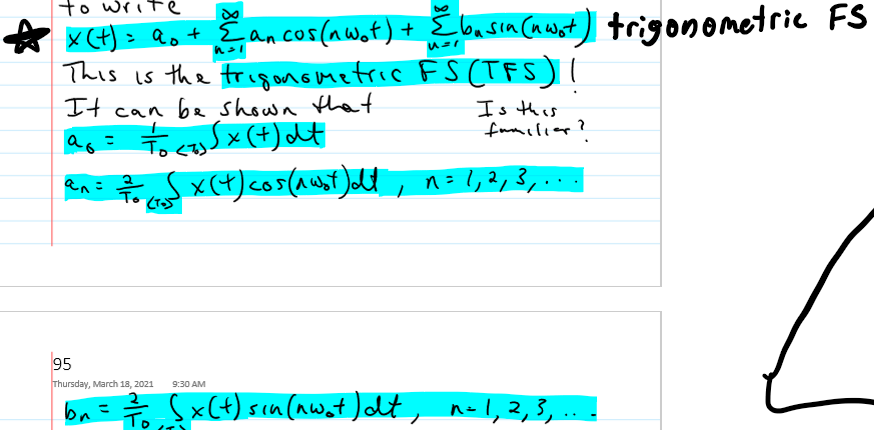 to write
x(t) = a₀ + ∞Σn=1 aₙ cos(nω₀t) + ∞Σn=1 bₙ sin(nω₀t) trigonometric FS
This is the trigonometric FS (TFS)!
It can be shown that
Is this familiar?
a₀ = 1/T₀ ∫<T₀> x(t) dt
aₙ = 2/T₀ ∫<T₀> x(t) cos(nω₀t) dt , n = 1, 2, 3, ...
95
Thursday, March 18, 2021 9:30 AM
bₙ = 2/T₀ ∫<T₀> x(t) sin(nω₀t) dt , n = 1, 2, 3, ...